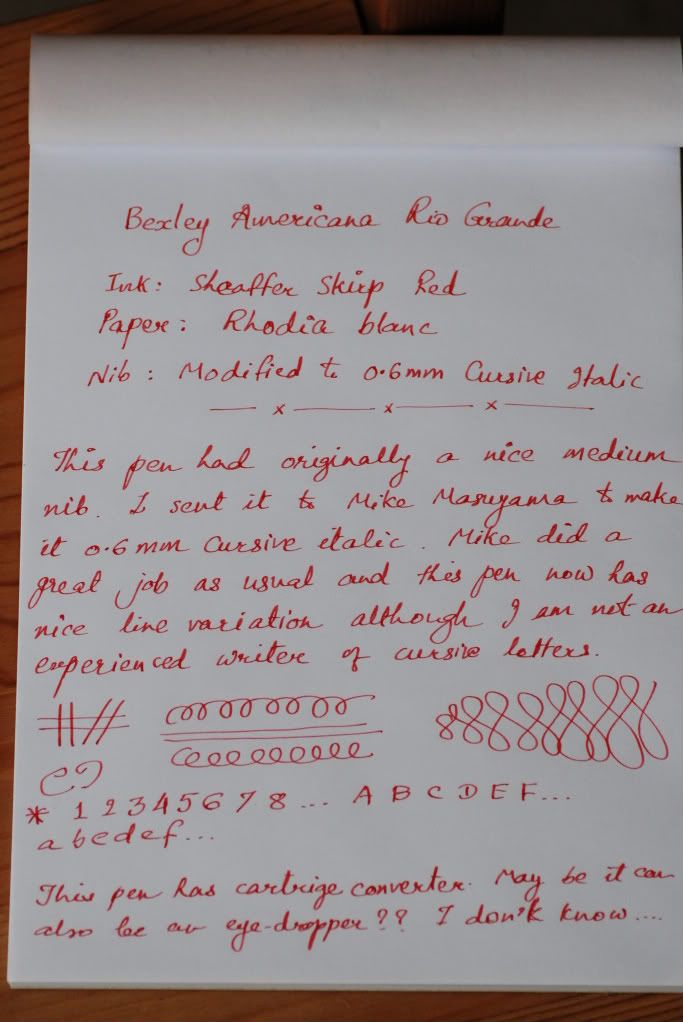 Bexley Americana Rio Grande
Ink: Sheaffer Skrip Red
Paper: Rhodia blanc
Nib: Modified to 0.6mm Cursive Italic
— x — x — x —
This pen had originally a nice medium
nib. I sent it to Mike Masuyama to make
it 0.6mm Cursive italic. Mike did a
great job as usual and this pen now has
nice line variation although I am not an
experienced writer of cursive letters.
* 1 2 3 4 5 6 7 8 ... A B C D E F...
a b c d e f ...
This pen has cartrige converter. May be it can
also be an eye-dropper?? I don't know....